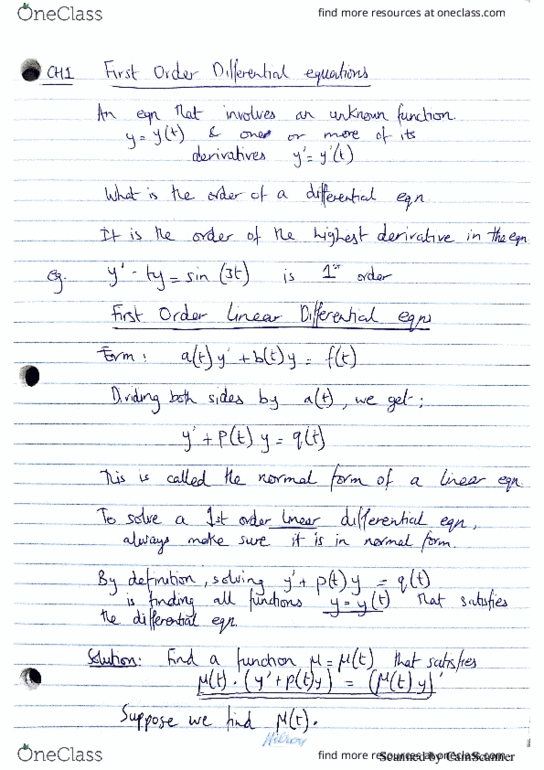 OneClass
find more resources at oneclass.com
CH1 First Order Differential equations
An eqn that involves an unknown function
y = y(t) & one or more of its
derivatives y' = y'(t)
What is the order of a differential eqn
It is the order of the highest derivative in the eqn
eg. y' - ty = sin (3t) is 1st order
First Order linear Differential eqns
Form: a(t) y' + b(t) y = f(t)
Dividing both sides by a(t), we get:
y' + P(t) y = q(t)
This is called the normal form of a linear eqn
To solve a 1st order linear differential eqn,
always make sure it is in normal form.
By definition, solving y' + p(t) y = q(t)
is finding all functions y = y(t) that satisfies
the differential eqn.
Solution: Find a function μ = μ(t) that satisfies
μ(t) · (y' + p(t)y) = (μ(t) y)'
Suppose we find μ(t).
Hilroy
OneClass
find more resources at oneclass.com
Scanned by CamScanner